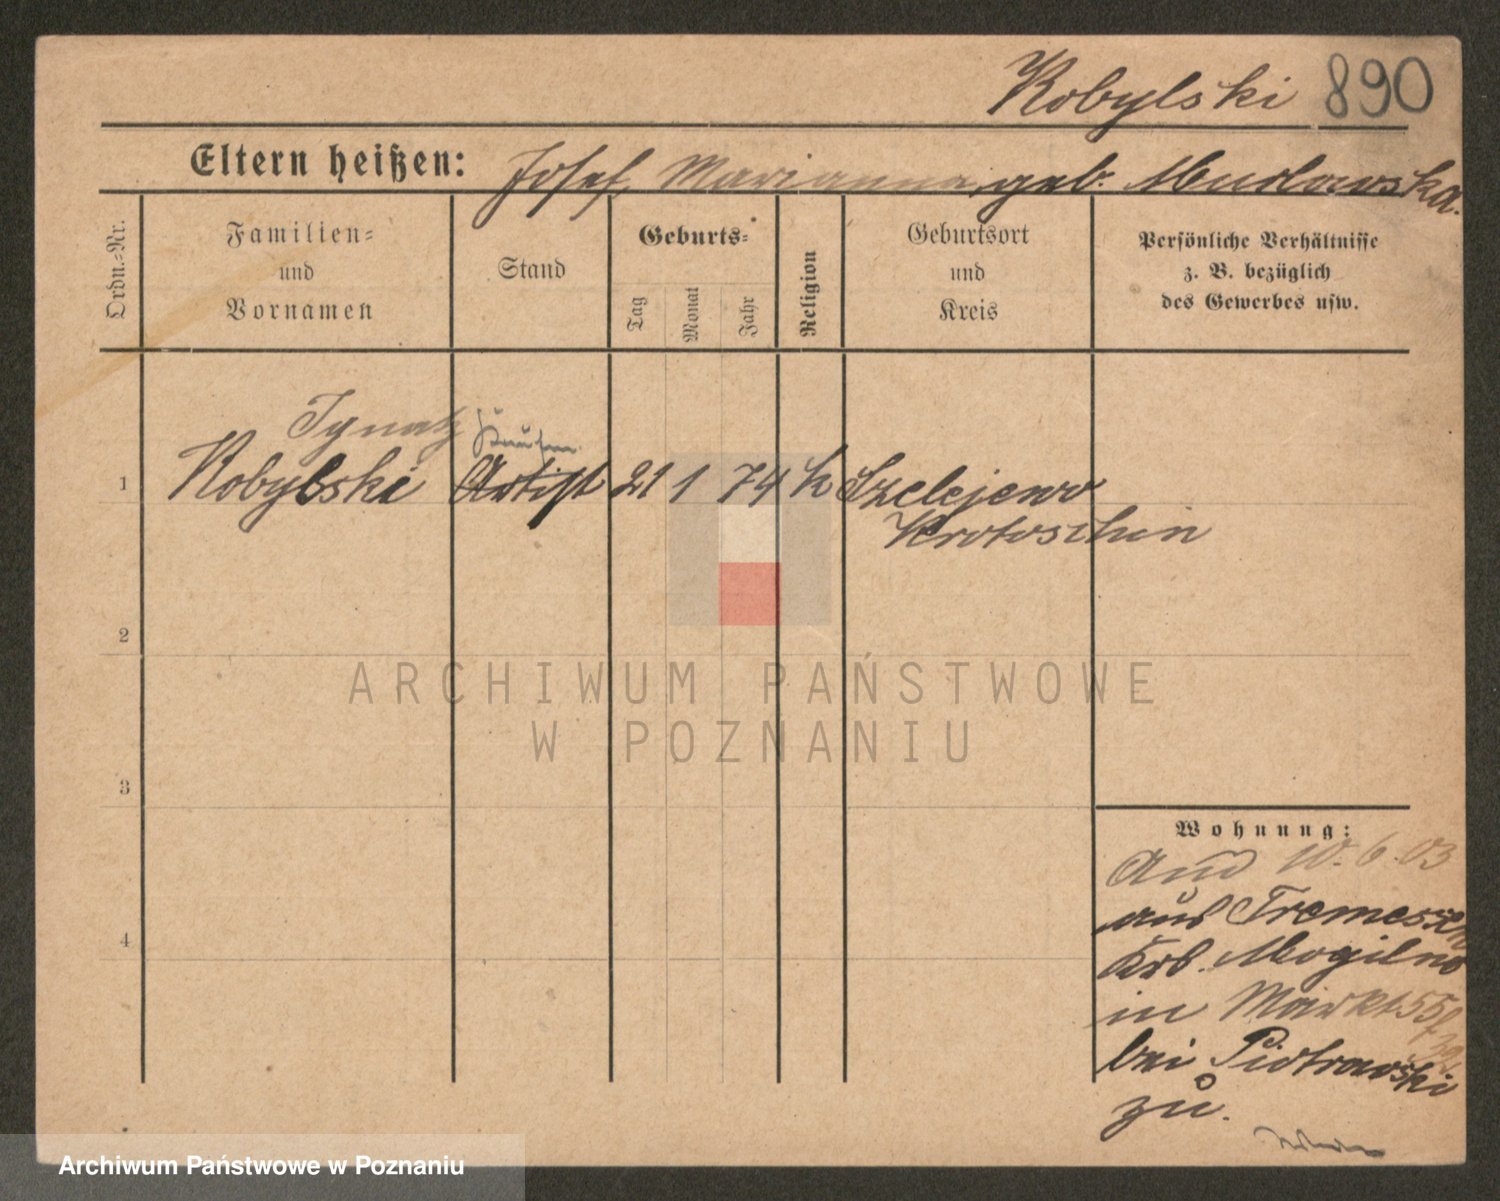 Kobylski 890
Eltern heißen: Josef, Marianna, geb. Mudlawska.
Ordn.-Nr.
Familien-
und
Vornamen
Stand
Geburts-
Tag
Monat
Jahr
Religion
Geburtsort
und
Kreis
Persönliche Verhältnisse
z. B. bezüglich
des Gewerbes usw.
Ignatz
1 Kobylski Artist 21 1 74 k Szelejewo
Krotoschin
2
3
4
ARCHIWUM PAŃSTWOWE
W POZNANIU
Wohnung:
10. 6. 03
aus Tremessen
Krs. Mogilno
in Markt 55
bei Piotrowski
zu.
Archiwum Państwowe w Poznaniu